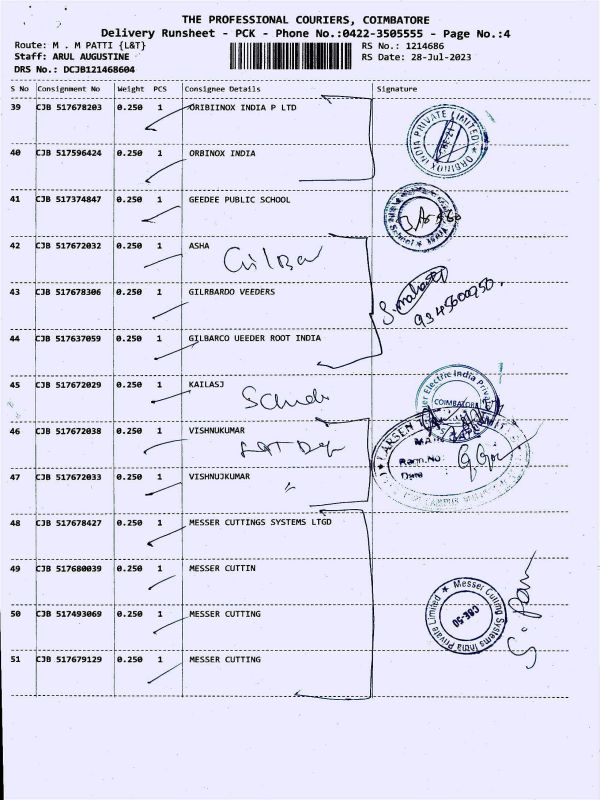 THE PROFESSIONAL COURIERS, COIMBATORE
Delivery Runsheet - PCK - Phone No.:0422-3505555 - Page No.:4
Route: M . M PATTI {L&T} RS No.: 1214686
Staff: ARUL AUGUSTINE RS Date: 28-Jul-2023
DRS No.: DCJB121468604
S No Consignment No Weight PCS Consignee Details Signature
39 CJB 517678203 0.250 1 ORIBIINOX INDIA P LTD
ORBINOX INDIA PRIVATE LIMITED
40 CJB 517596424 0.250 1 ORBINOX INDIA
41 CJB 517374847 0.250 1 GEEDEE PUBLIC SCHOOL
School
42 CJB 517672032 0.250 1 ASHA
Gilbar
43 CJB 517678306 0.250 1 GILRBARDO VEEDERS
9345600950.
44 CJB 517637059 0.250 1 GILBARCO UEEDER ROOT INDIA
45 CJB 517672029 0.250 1 KAILASJ
Electric India Priva
COIMBATORE
46 CJB 517672038 0.250 1 VISHNUKUMAR
LARSEN
MAIN GATE
Ramn.No:
Date
47 CJB 517672033 0.250 1 VISHNUJKUMAR
48 CJB 517678427 0.250 1 MESSER CUTTINGS SYSTEMS LTGD
49 CJB 517680039 0.250 1 MESSER CUTTIN
50 CJB 517493069 0.250 1 MESSER CUTTING
Messer Cutting Systems India Private Limited
CBE-50
51 CJB 517679129 0.250 1 MESSER CUTTING